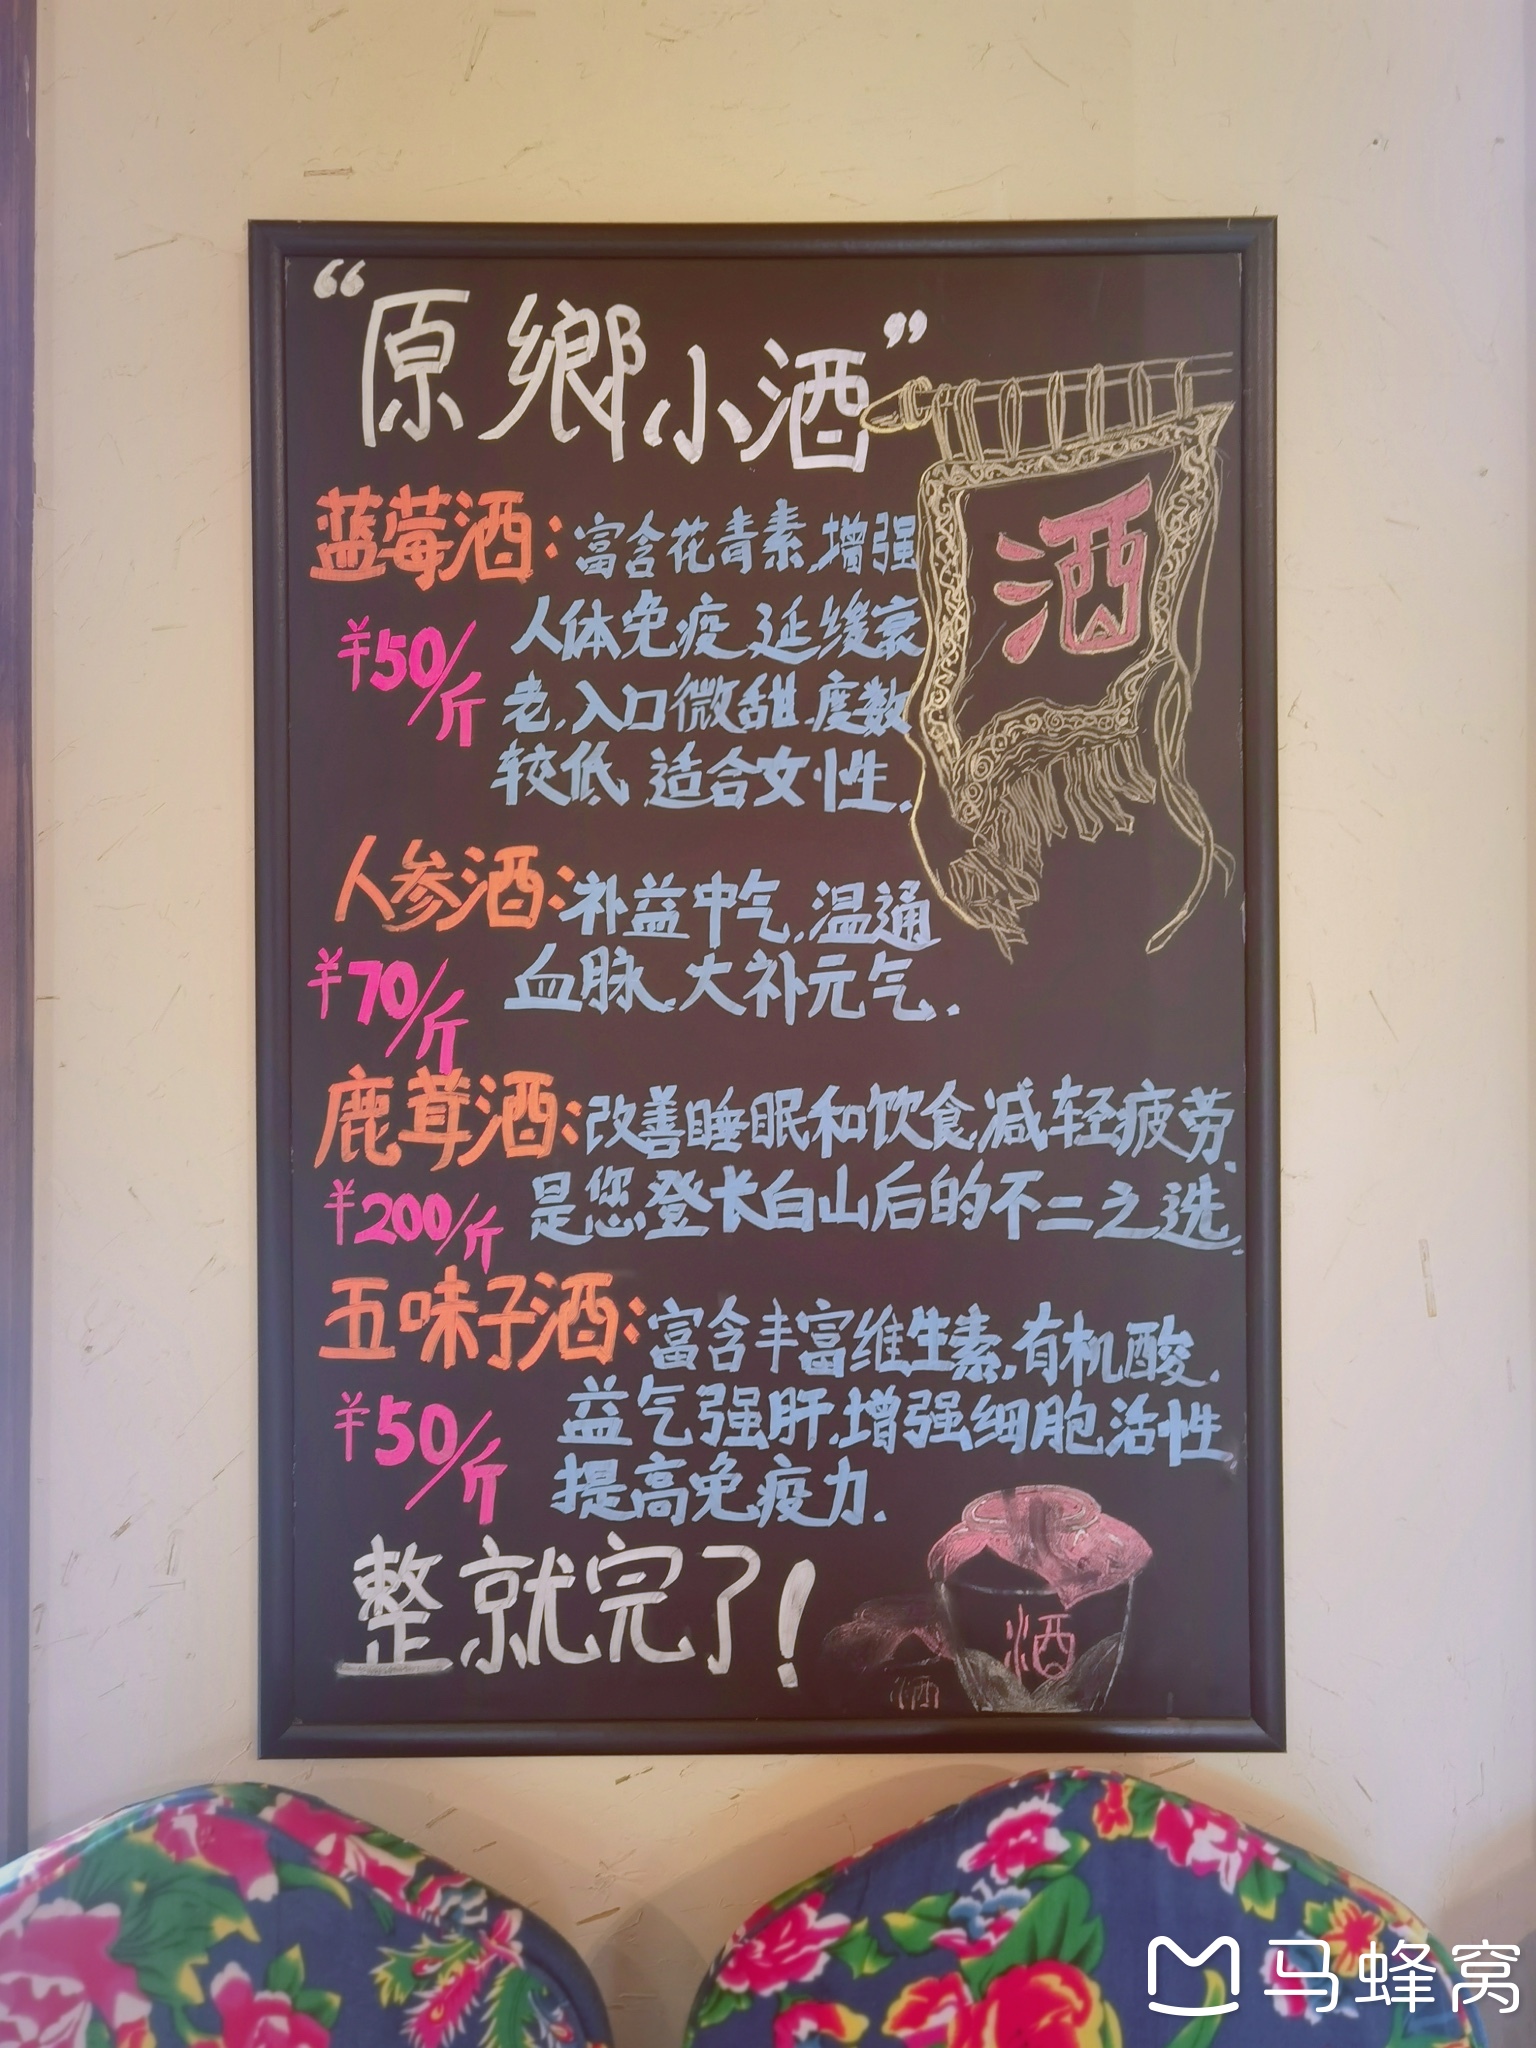 “原鄉小酒”
酒
蓝莓酒：富含花青素，增强
¥50/斤
人体免疫，延缓衰
老，入口微甜，度数
较低，适合女性．
人参酒：补益中气，温通
¥70/斤
血脉，大补元气．
鹿茸酒：改善睡眠和饮食，减轻疲劳．
¥200/斤
是您登长白山后的不二之选．
五味子酒：富含丰富维生素，有机酸．
¥50/斤
益气强肝，增强细胞活性
提高免疫力．
整就完了！
酒
酒
马蜂窝